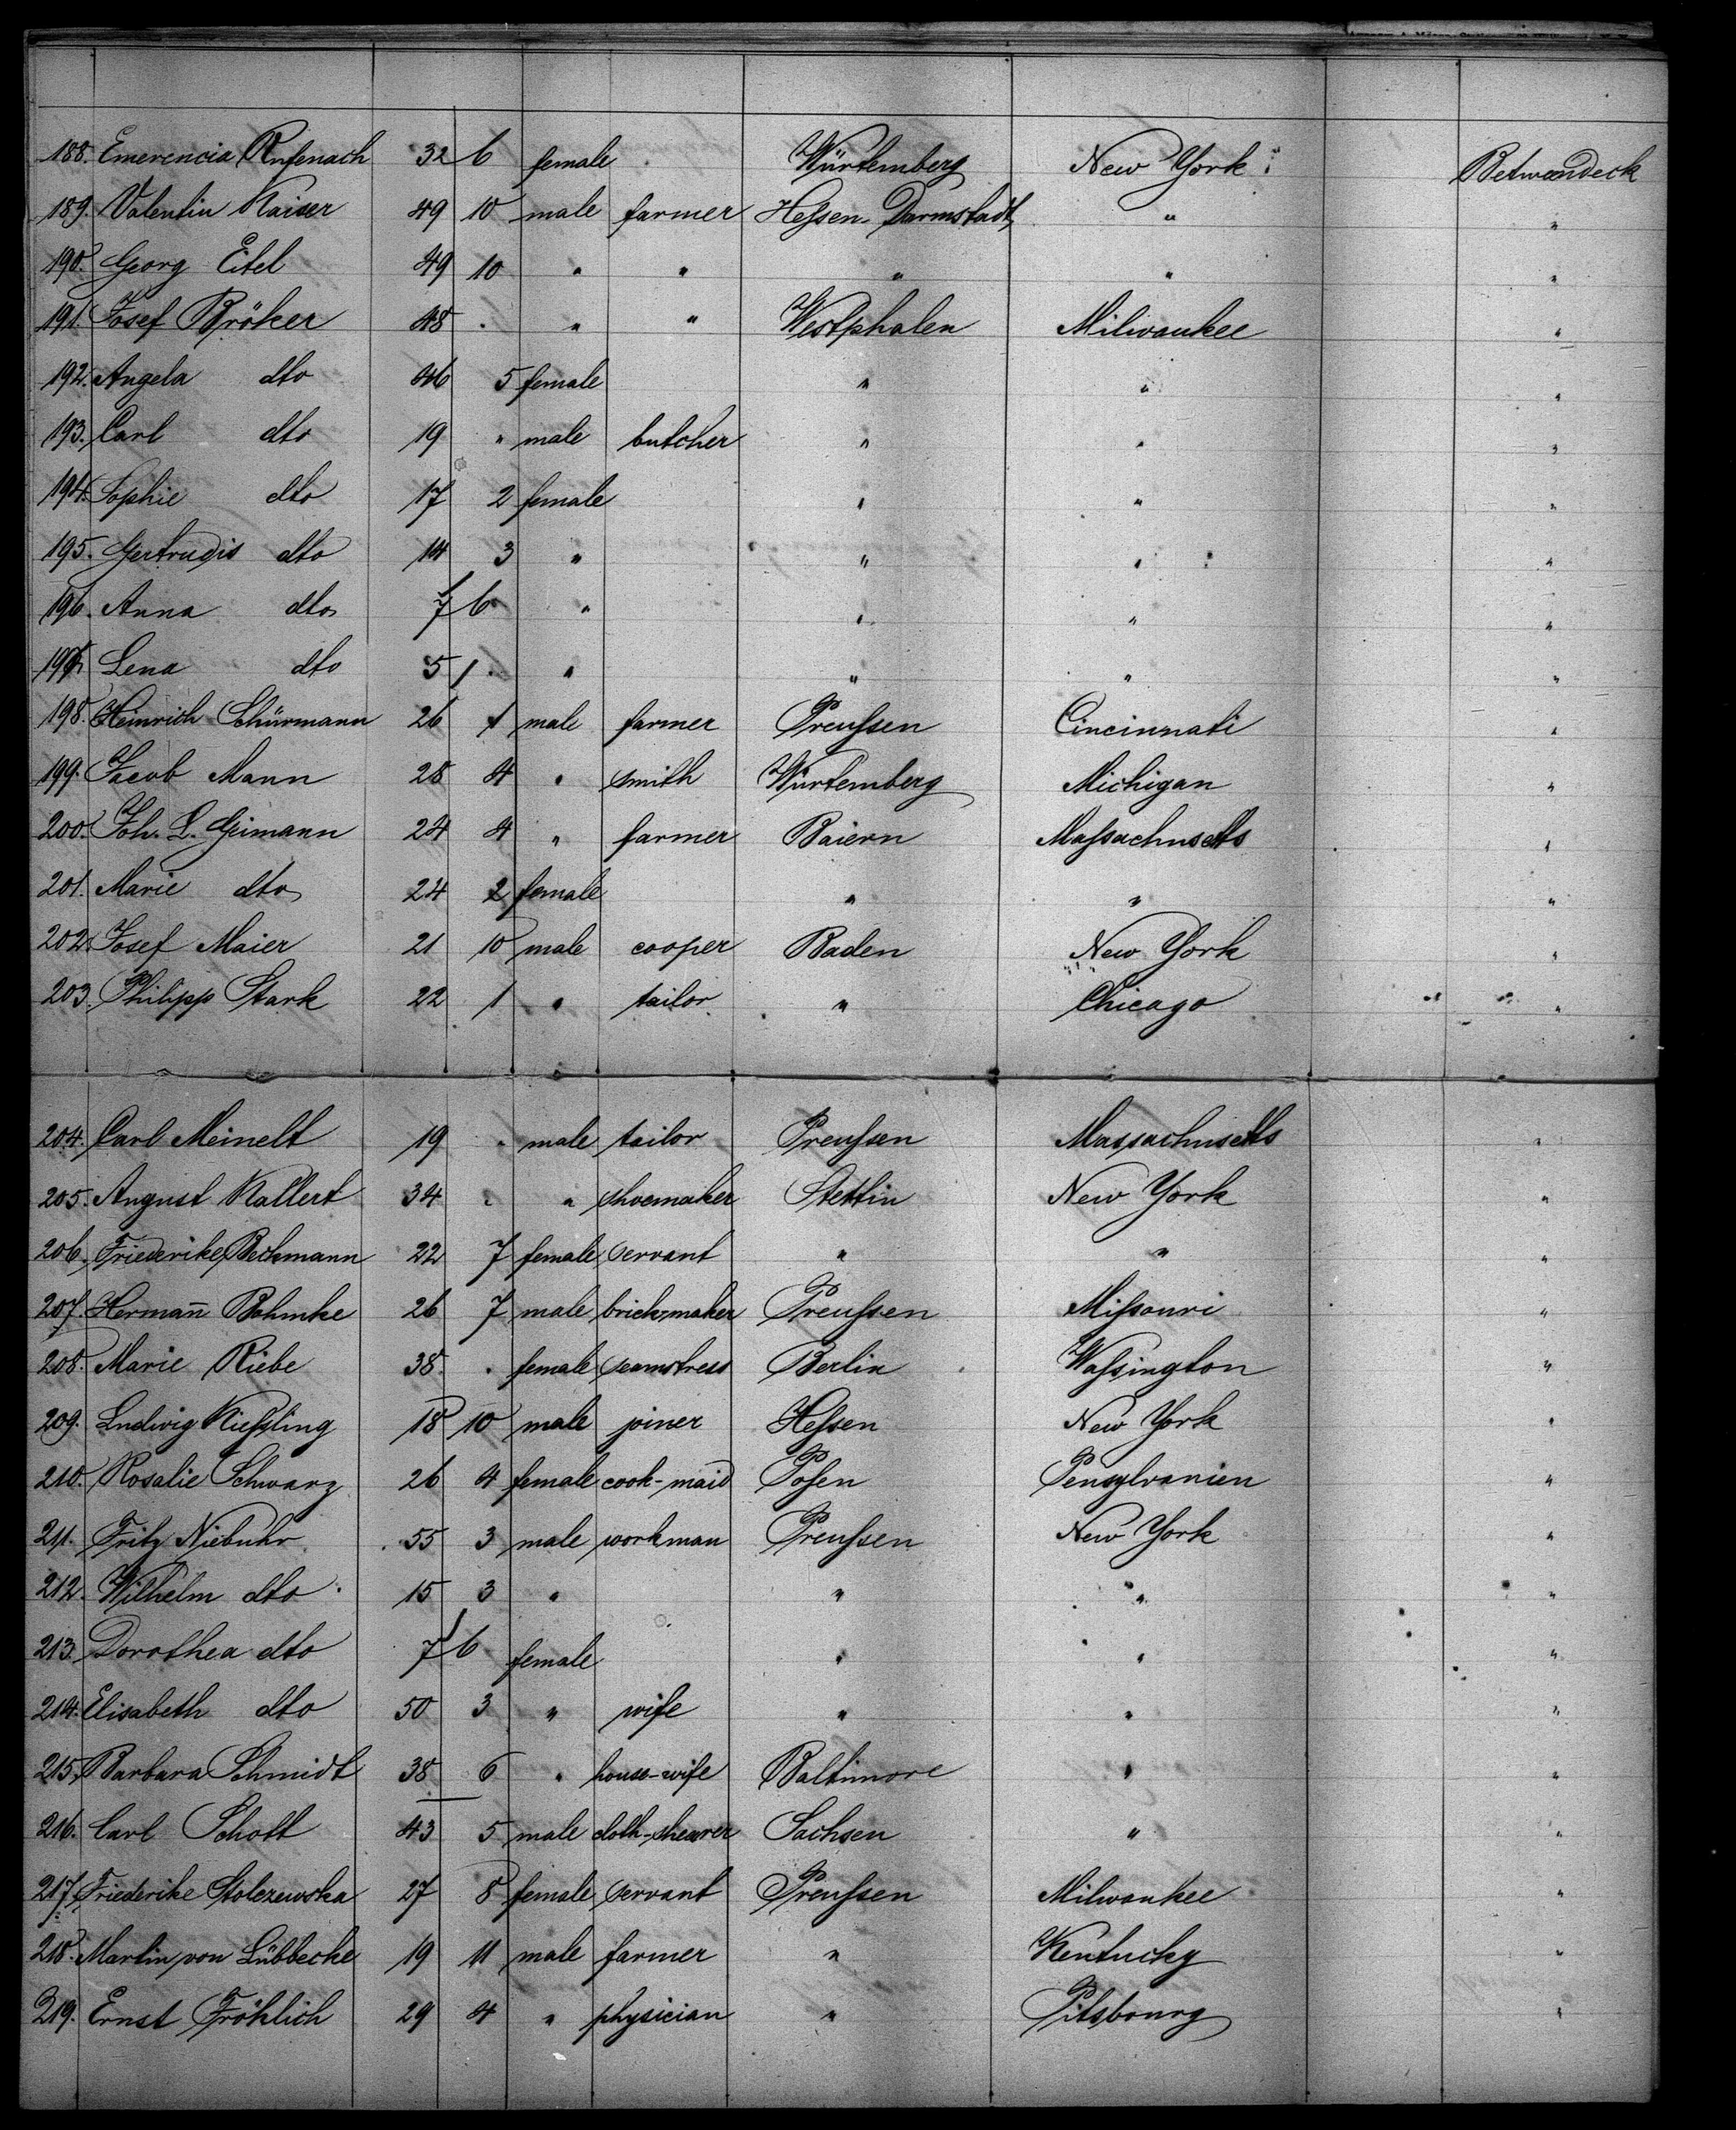 188. Emerencia Rufenach 32 6 female Würtemberg New York Betweendeck
189. Valentin Kaiser 49 10 male farmer Heſsen Darmstadt " "
190. Georg Eitel 49 10 " " " " "
191. Josef Bröker 48 . " " Westphalen Milwaukee "
192. Angela dto 46 5 female " " "
193. Carl dto 19 " male butcher " " "
194. Sophie dto 17 2 female " " "
195. Gertrudis dto 14 3 " " " "
196. Anna dto 7 6 " " " "
197. Lena dto 5 1 " " " "
198. Heinrich Schürmann 26 1 male farmer Preuſsen Cincinnati "
199. Jacob Mann 28 4 " smith Würtemberg Michigan "
200. Joh. L. Geimann 24 4 " farmer Baiern Maſsachusetts "
201. Marie dto 24 2 female " " "
202. Josef Maier 21 10 male cooper Baden New York "
203. Philipp Stark 22 1 " tailor " Chicago "
204. Carl Meinelt 19 . male tailor Preuſsen Massachusetts "
205. August Kallert 34 . " shoemaker Stettin New York "
206. Friederike Beckmann 22 7 female servant " " "
207. Herman̄ Bohmke 26 7 male brick-maker Preuſsen Miſsouri "
208. Marie Riebe 38 . female seamstress Berlin Waſsington "
209. Ludwig Kieſsling 18 10 male joiner Heſsen New York "
210. Rosalie Schwarz 26 4 female cook-maid Poſen Pensylvanien "
211. Fritz Niebuhr 55 3 male workman Preuſsen New York "
212. Wilhelm dto 15 3 " " " "
213. Dorothea dto 7 6 female " " "
214. Elisabeth dto 50 3 " wife " " "
215. Barbara Schmidt 38 6 " house-wife Baltimore " "
216. Carl Schott 43 5 male cloth-shearer Sachsen " "
217. Friederike Stolczewska 27 8 female servant Preuſsen Milwaukee "
218. Martin von Lübbecke 19 11 male farmer " Kentucky "
219. Ernst Fröhlich 29 4 " physician " Pitsbourg "